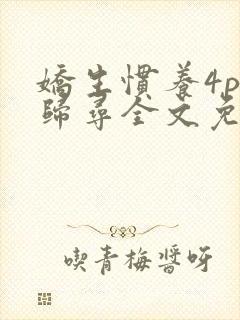 嬌生慣養4p
歸尋全文免
喫青梅醬呀